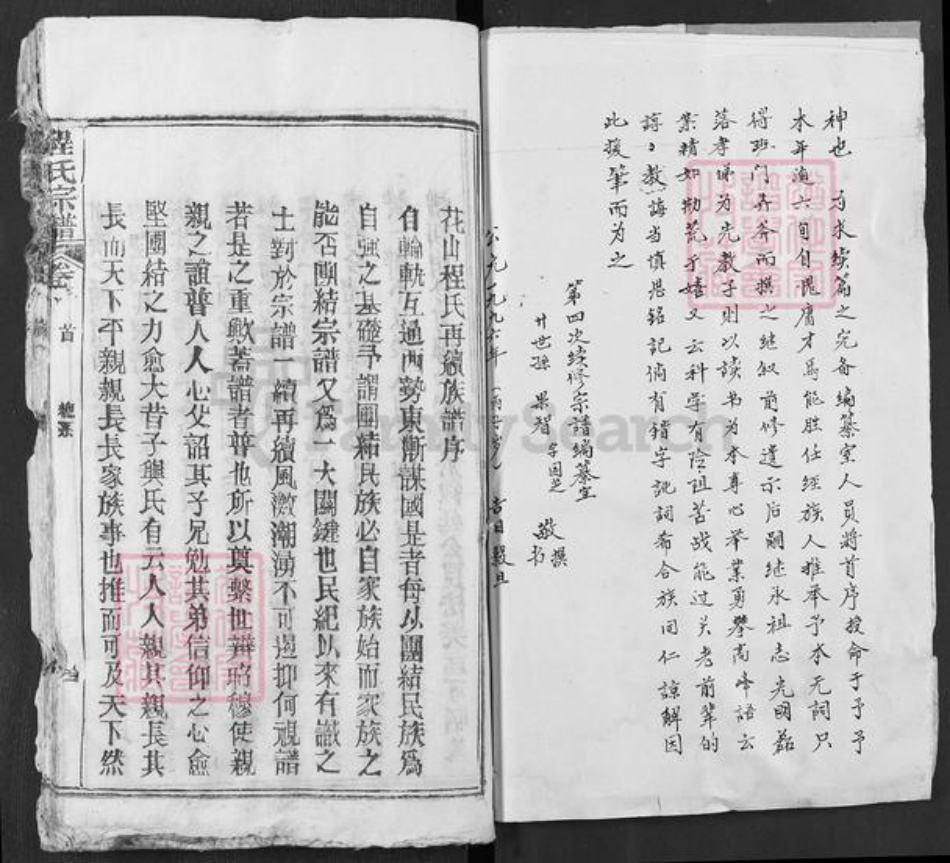 神也 为求续篇之完备编纂室人员将首序授命于予予
本年逾六旬自愧庸才焉能胜任经族人推举予本元词只
得班门弄斧而撰之继叙前修遗示后嗣继承祖志光明磊
落孝悌为先教子则以读书为本专心举业勇攀高峰语云
业精如勤荒于嬉又云科学有险阻苦战能过关老前辈的
谆々教诲当慎思铭记倘有错字讹词希合族同仁谅解因
此援笔而为之
第四次续修宗谱编纂室
廿世孙 果智 字国芝 敬撰书
公元一九九六年(丙子岁) 吉日 穀旦
花山程氏再續族譜序
自輪軌互通西勢東漸謀國是者每以團結民族爲
自強之基礎予謂團結民族必自家族始而家族之
能否團結宗譜又爲一大關鍵也民紀以來有識之
士對於宗譜一續再續風激潮湧不可遏抑何視譜
者是之重歟蓋譜者普也所以奠繫世辯昭穆使親
親之誼普人人心父詔其子兄勉其弟信仰之心愈
堅團結之力愈大昔子輿氏有云人人親其親長其
長而天下平親親長長家族事也推而可及天下然
程氏宗譜
卷
首
總系
FamilySearch